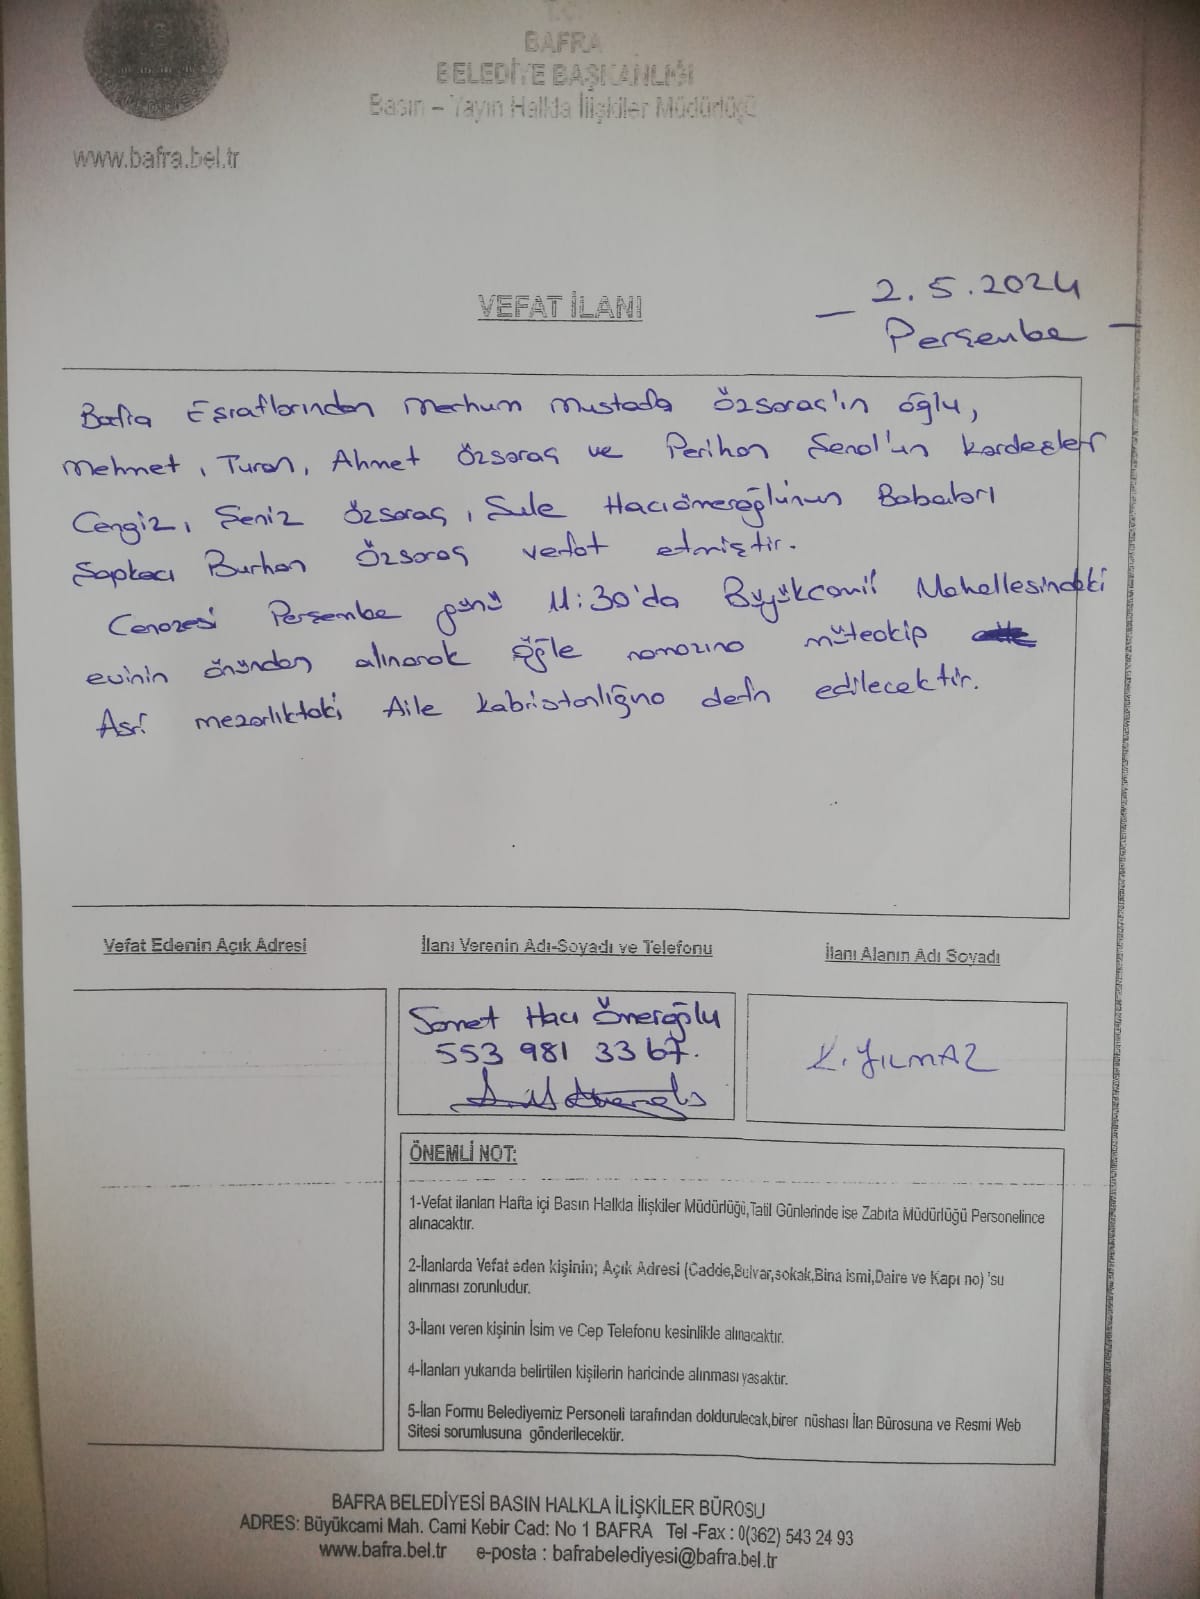 T.C.
BAFRA
BELEDİYE BAŞKANLIĞI
Basın – Yayın Halkla İlişkiler Müdürlüğü
www.bafra.bel.tr
VEFAT İLANI
– 2.5.2024
Perşembe –
Bafra Eşraflarından Merhum Mustafa Özsaraç'ın oğlu,
Mehmet, Turan, Ahmet Özsaraç ve Perihan Şenol'un kardeşler
Cengiz, Şeniz Özsaraç, Şule Hacıömeroğlunun Babaları
Şapkacı Burhan Özsaraç vefat etmiştir.
Cenazesi Perşembe günü 11:30'da Büyükcamii Mahallesindeki
evinin önünden alınarak öğle namazına müteakip
Asri mezarlıktaki Aile kabristanlığna defn edilecektir.
Vefat Edenin Açık Adresi
İlanı Verenin Adı-Soyadı ve Telefonu
İlanı Alanın Adı Soyadı
Samet Hacı Ömeroğlu
553 981 33 67.
K. YILMAZ
ÖNEMLİ NOT:
1-Vefat ilanları Hafta içi Basın Halkla İlişkiler Müdürlüğü,Tatil Günlerinde ise Zabıta Müdürlüğü Personelince
alınacaktır.
2-İlanlarda Vefat eden kişinin; Açık Adresi (Cadde,Bulvar,sokak,Bina ismi,Daire ve Kapı no) 'su
alınması zorunludur.
3-İlanı veren kişinin İsim ve Cep Telefonu kesinlikle alınacaktır.
4-İlanları yukarıda belirtilen kişilerin haricinde alınması yasaktır.
5-İlan Formu Belediyemiz Personeli tarafından doldurulacak,birer nüshası İlan Bürosuna ve Resmi Web
Sitesi sorumlusuna gönderilecektir.
BAFRA BELEDİYESİ BASIN HALKLA İLİŞKİLER BÜROSU
ADRES: Büyükcami Mah. Cami Kebir Cad: No 1 BAFRA Tel -Fax : 0(362) 543 24 93
www.bafra.bel.tr e-posta : bafrabelediyesi@bafra.bel.tr